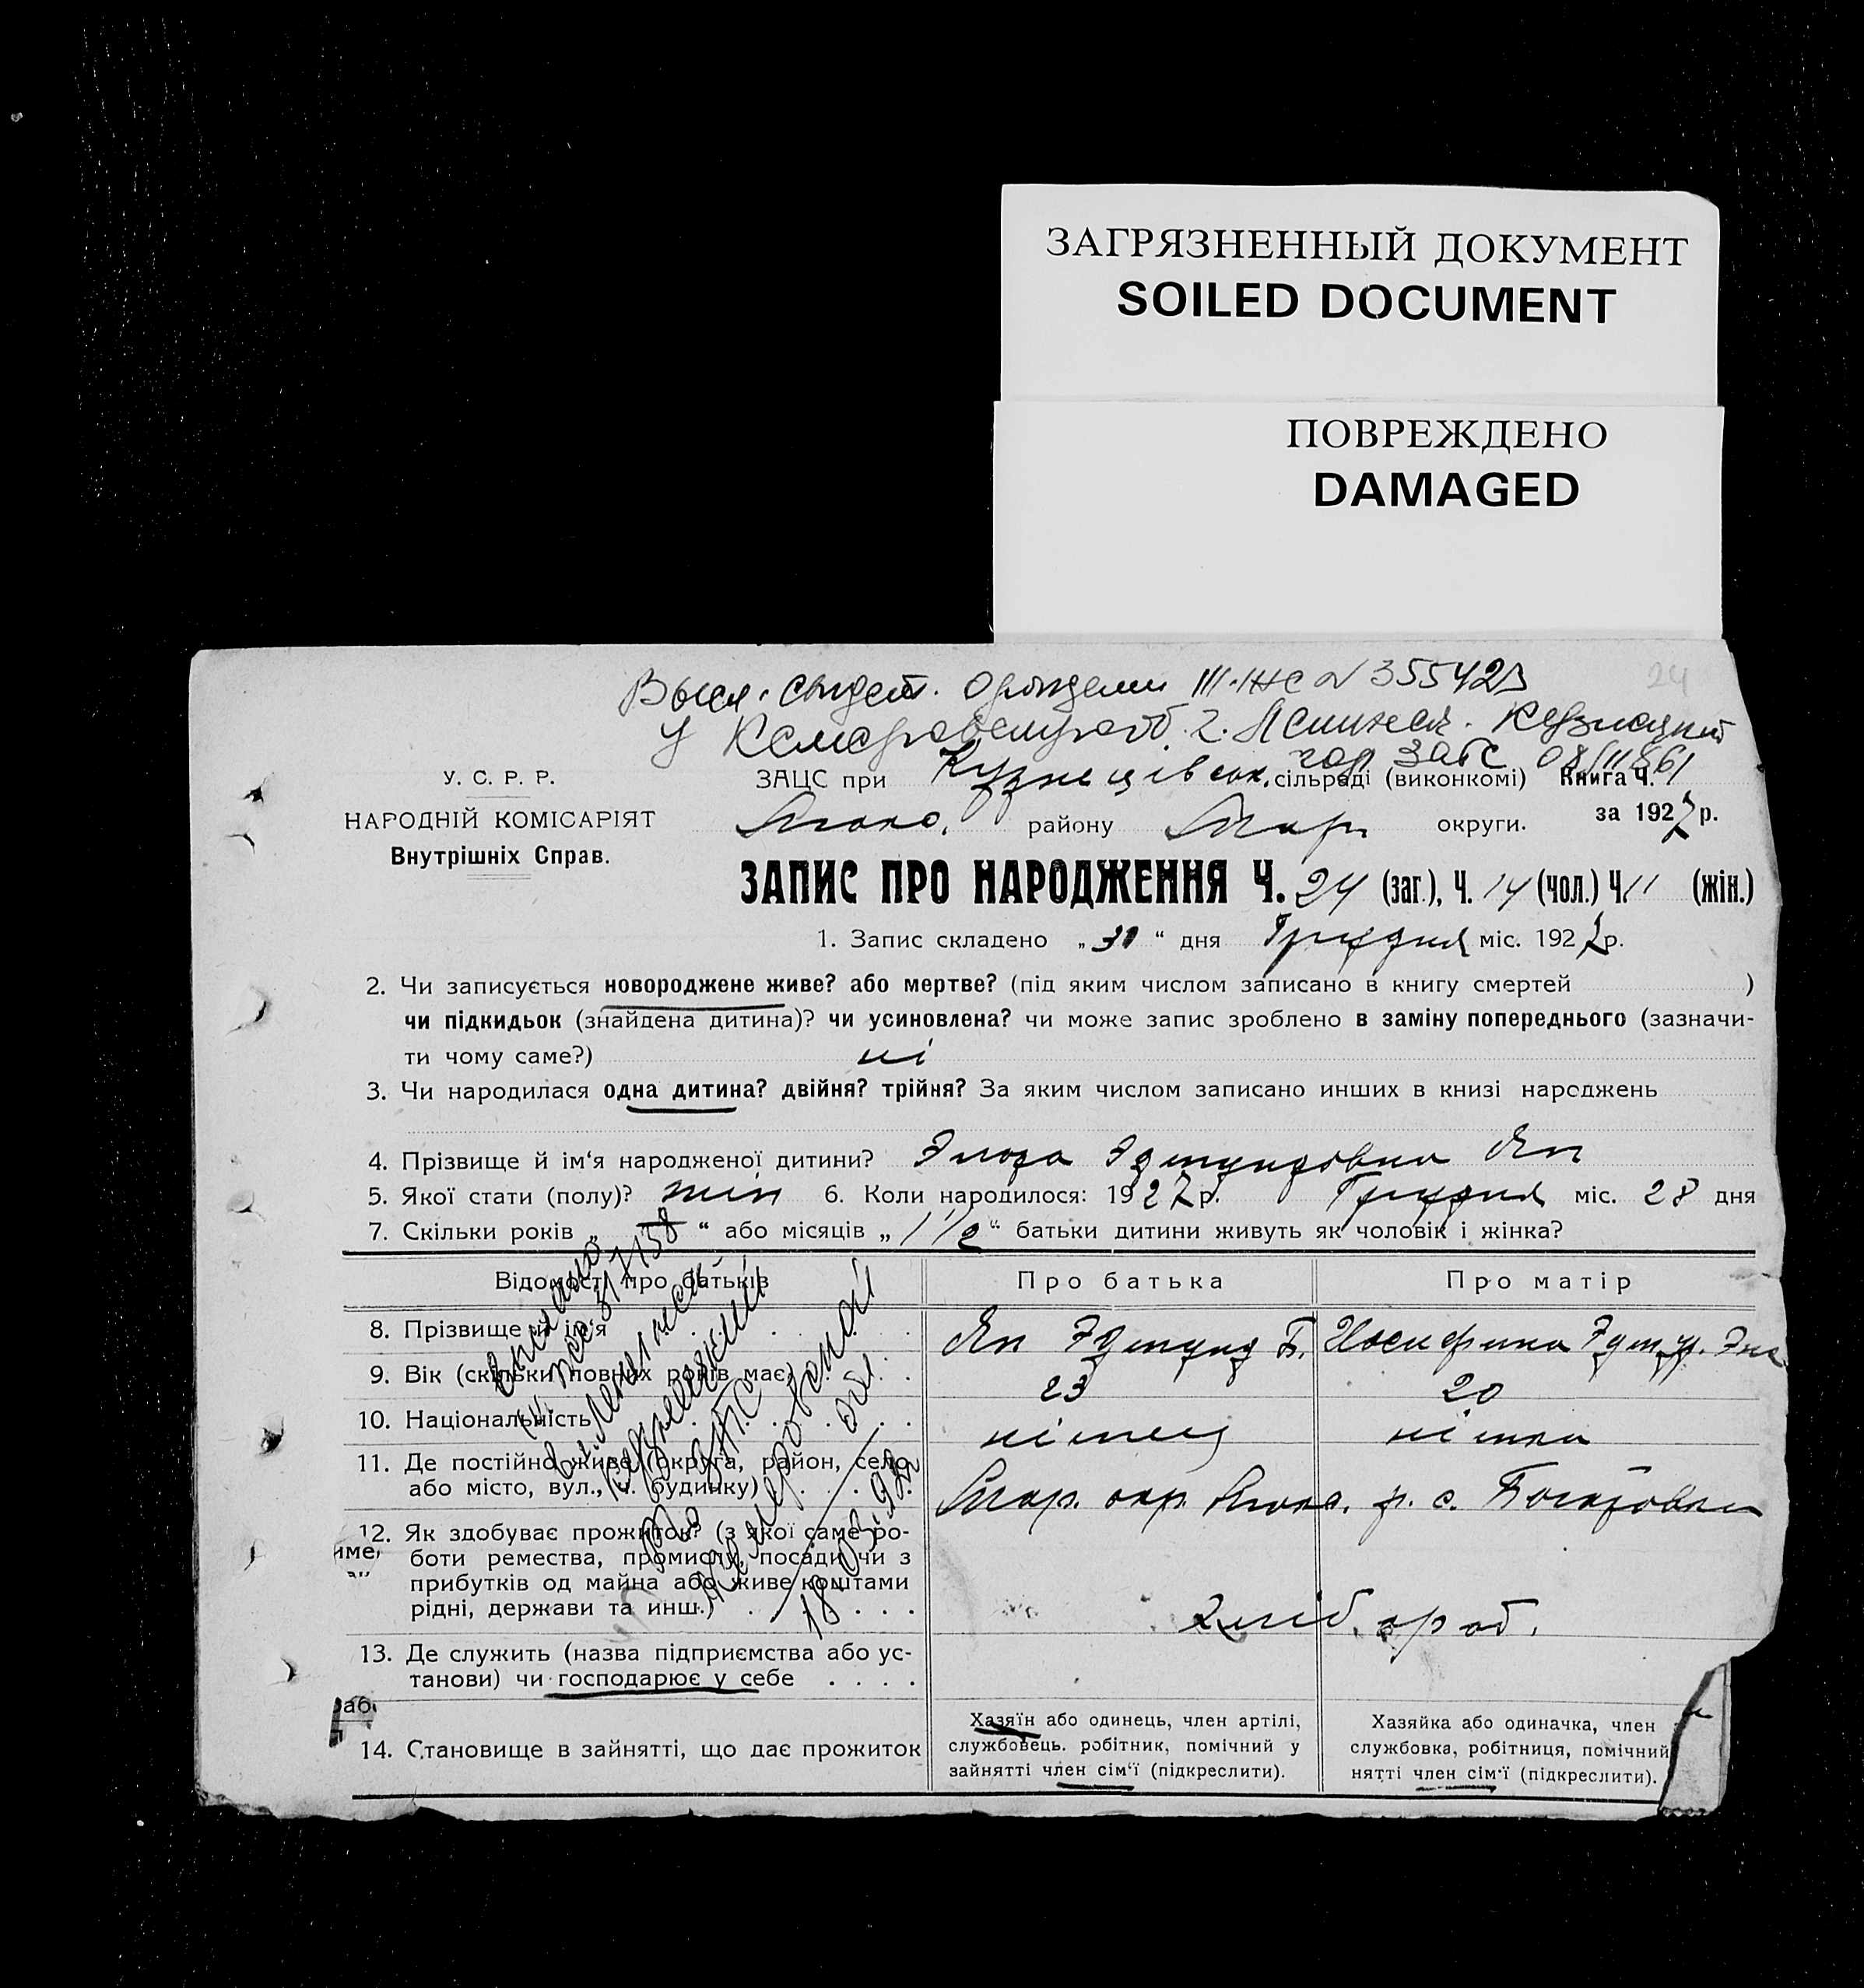 ЗАГРЯЗНЕННЫЙ ДОКУМЕНТ
SOILED DOCUMENT
ПОВРЕЖДЕНО
DAMAGED
24
III-ЖС N 355423
у г. Ленинск. Кузнецкий
гор ЗАГС
У. С. Р. Р.
ЗАЦС при Кузнецівськ. сільраді (виконкомі) Книга Ч.
НАРОДНІЙ КОМІСАРІЯТ
району округи. за 1927 р.
Внутрішніх Справ.
ЗАПИС ПРО НАРОДЖЕННЯ Ч. 24 (заг.), Ч. 14 (чол.) Ч. 11 (жін.)
1. Запис складено „ “ дня Грудня міс. 1927 р.
2. Чи записується новороджене живе? або мертве? (під яким числом записано в книгу смертей )
чи підкидьок (знайдена дитина)? чи усиновлена? чи може запис зроблено в заміну попереднього (зазначи-
ти чому саме?) ні
3. Чи народилася одна дитина? двійня? трійня? За яким числом записано инших в книзі народжень
4. Прізвище й ім'я народженої дитини? Эдмундовна Яп
5. Якої стати (полу)? жін 6. Коли народилося: 1927 р. Грудня міс. 28 дня
7. Скільки років „ — “ або місяців „ 1 1/2 “ батьки дитини живуть як чоловік і жінка?
Відомості про батьків Про батька Про матір
8. Прізвище й ім'я Яп Эдмунд Б.
9. Вік (скільки повних років має) 23 20
10. Національність німець німка
11. Де постійно живе (округа, район, село
або місто, вул., ч. будинку) окр. р. с.
12. Як здобуває прожиток? (з якої саме ро-
боти ремества, промислу, посади чи з
прибутків од майна або живе коштами
рідні, держави та инш.) хліб
13. Де служить (назва підприємства або ус-
танови) чи господарює у себе
14. Становище в зайнятті, що дає прожиток
Хазяїн або одинець, член артілі,
службовець. робітник, помічний у
зайнятті член сім'ї (підкреслити).
Хазяйка або одиначка, член
службовка, робітниця, помічний
нятті член сім'ї (підкреслити).
в г. Ленинск
Кузнецкий
ЗАГС
Кемеровской
обл
18.03.92